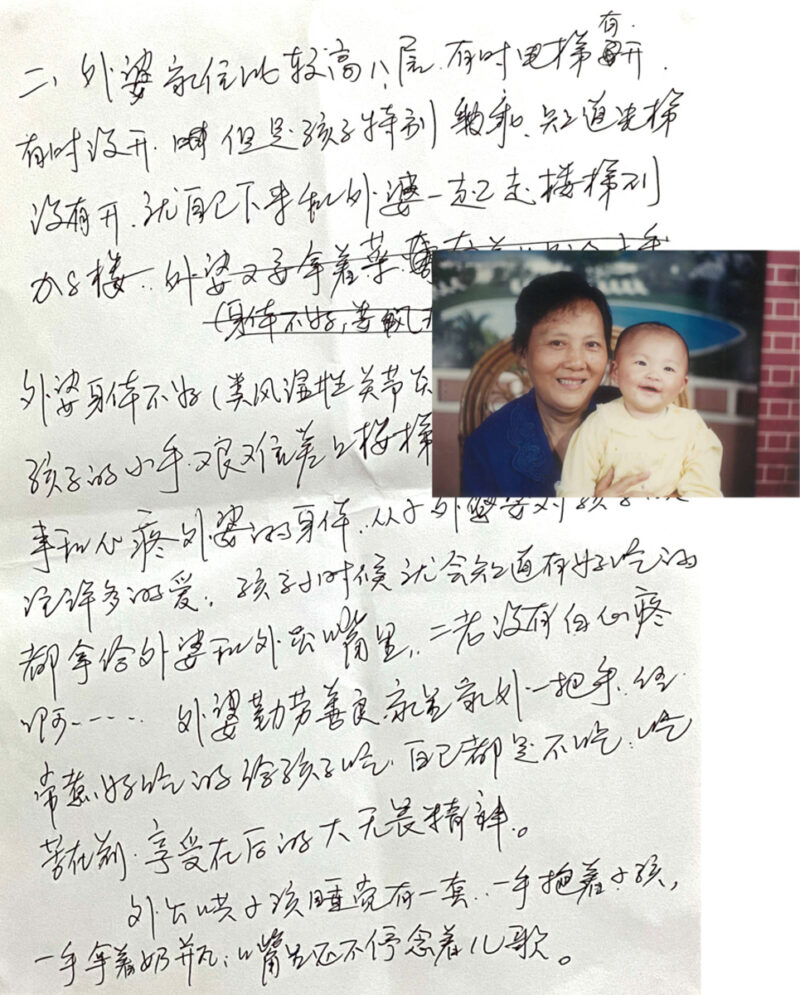 有.
二、外婆家住比较高八层.有时电梯开.
有时没开.但是孩子特别乖.知道电梯
没有开.就自己下来和外婆一起走楼梯到
八楼..外婆又要拿着菜.
(身体不好,
外婆身体不好(类风湿性关节炎
孩子的小手.艰难住着上楼梯
事和心疼外婆的身体..从小外婆对孩子
注许多的爱。孩子小时候就会知道有好吃的
都拿给外婆和外公嘴里,.二老没有白心疼
啊…… 外婆勤劳善良.家里家外一把手.经
常煮好吃的给孩子吃.自己都是不吃.吃
苦在前.享受在后的大无畏精神。
外公哄小孩睡觉有一套..一手抱着小孩,
一手拿着奶瓶;嘴里还不停念着儿歌。